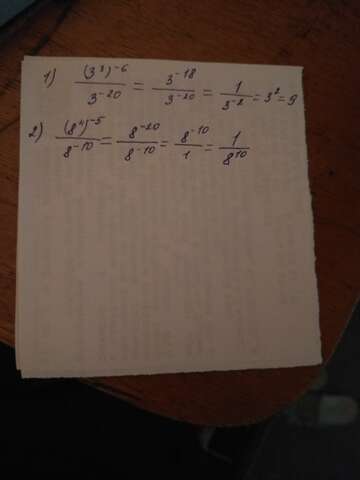 1) (3³)⁻⁶ / 3⁻²⁰ = 3⁻¹⁸ / 3⁻²⁰ = 1 / 3⁻² = 3² = 9
2) (8⁴)⁻⁵ / 8⁻¹⁰ = 8⁻²⁰ / 8⁻¹⁰ = 8⁻¹⁰ / 1 = 1 / 8¹⁰